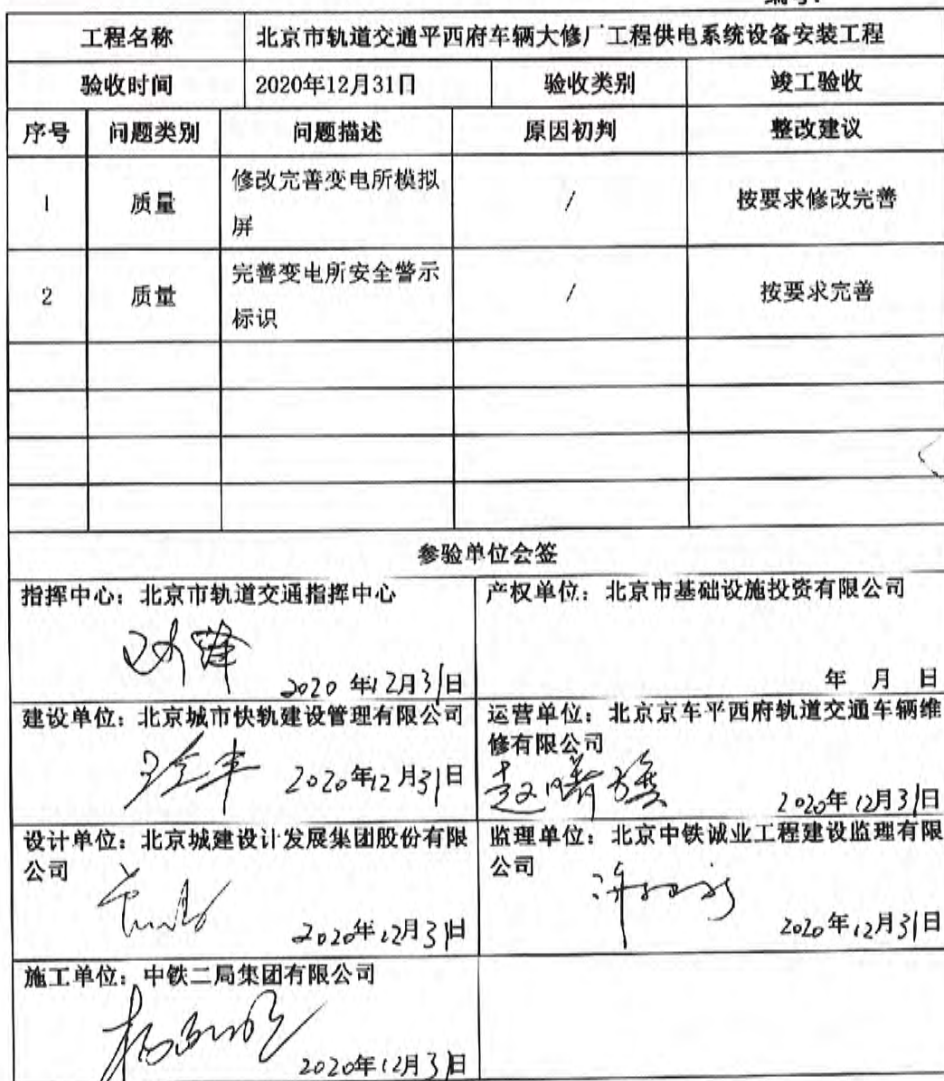 工程名称 北京市轨道交通平西府车辆大修厂工程供电系统设备安装工程
验收时间 2020年12月31日 验收类别 竣工验收
序号 问题类别 问题描述 原因初判 整改建议
1 质量 修改完善变电所模拟 / 按要求修改完善
屏
2 质量 完善变电所安全警示 / 按要求完善
标识
参验单位会签
指挥中心：北京市轨道交通指挥中心
2020年12月31日
产权单位：北京市基础设施投资有限公司
年 月 日
建设单位：北京城市快轨建设管理有限公司
2020年12月31日
运营单位：北京京车平西府轨道交通车辆维
修有限公司
2020年12月31日
设计单位：北京城建设计发展集团股份有限
公司
2020年12月31日
监理单位：北京中铁诚业工程建设监理有限
公司
2020年12月31日
施工单位：中铁二局集团有限公司
2020年12月31日